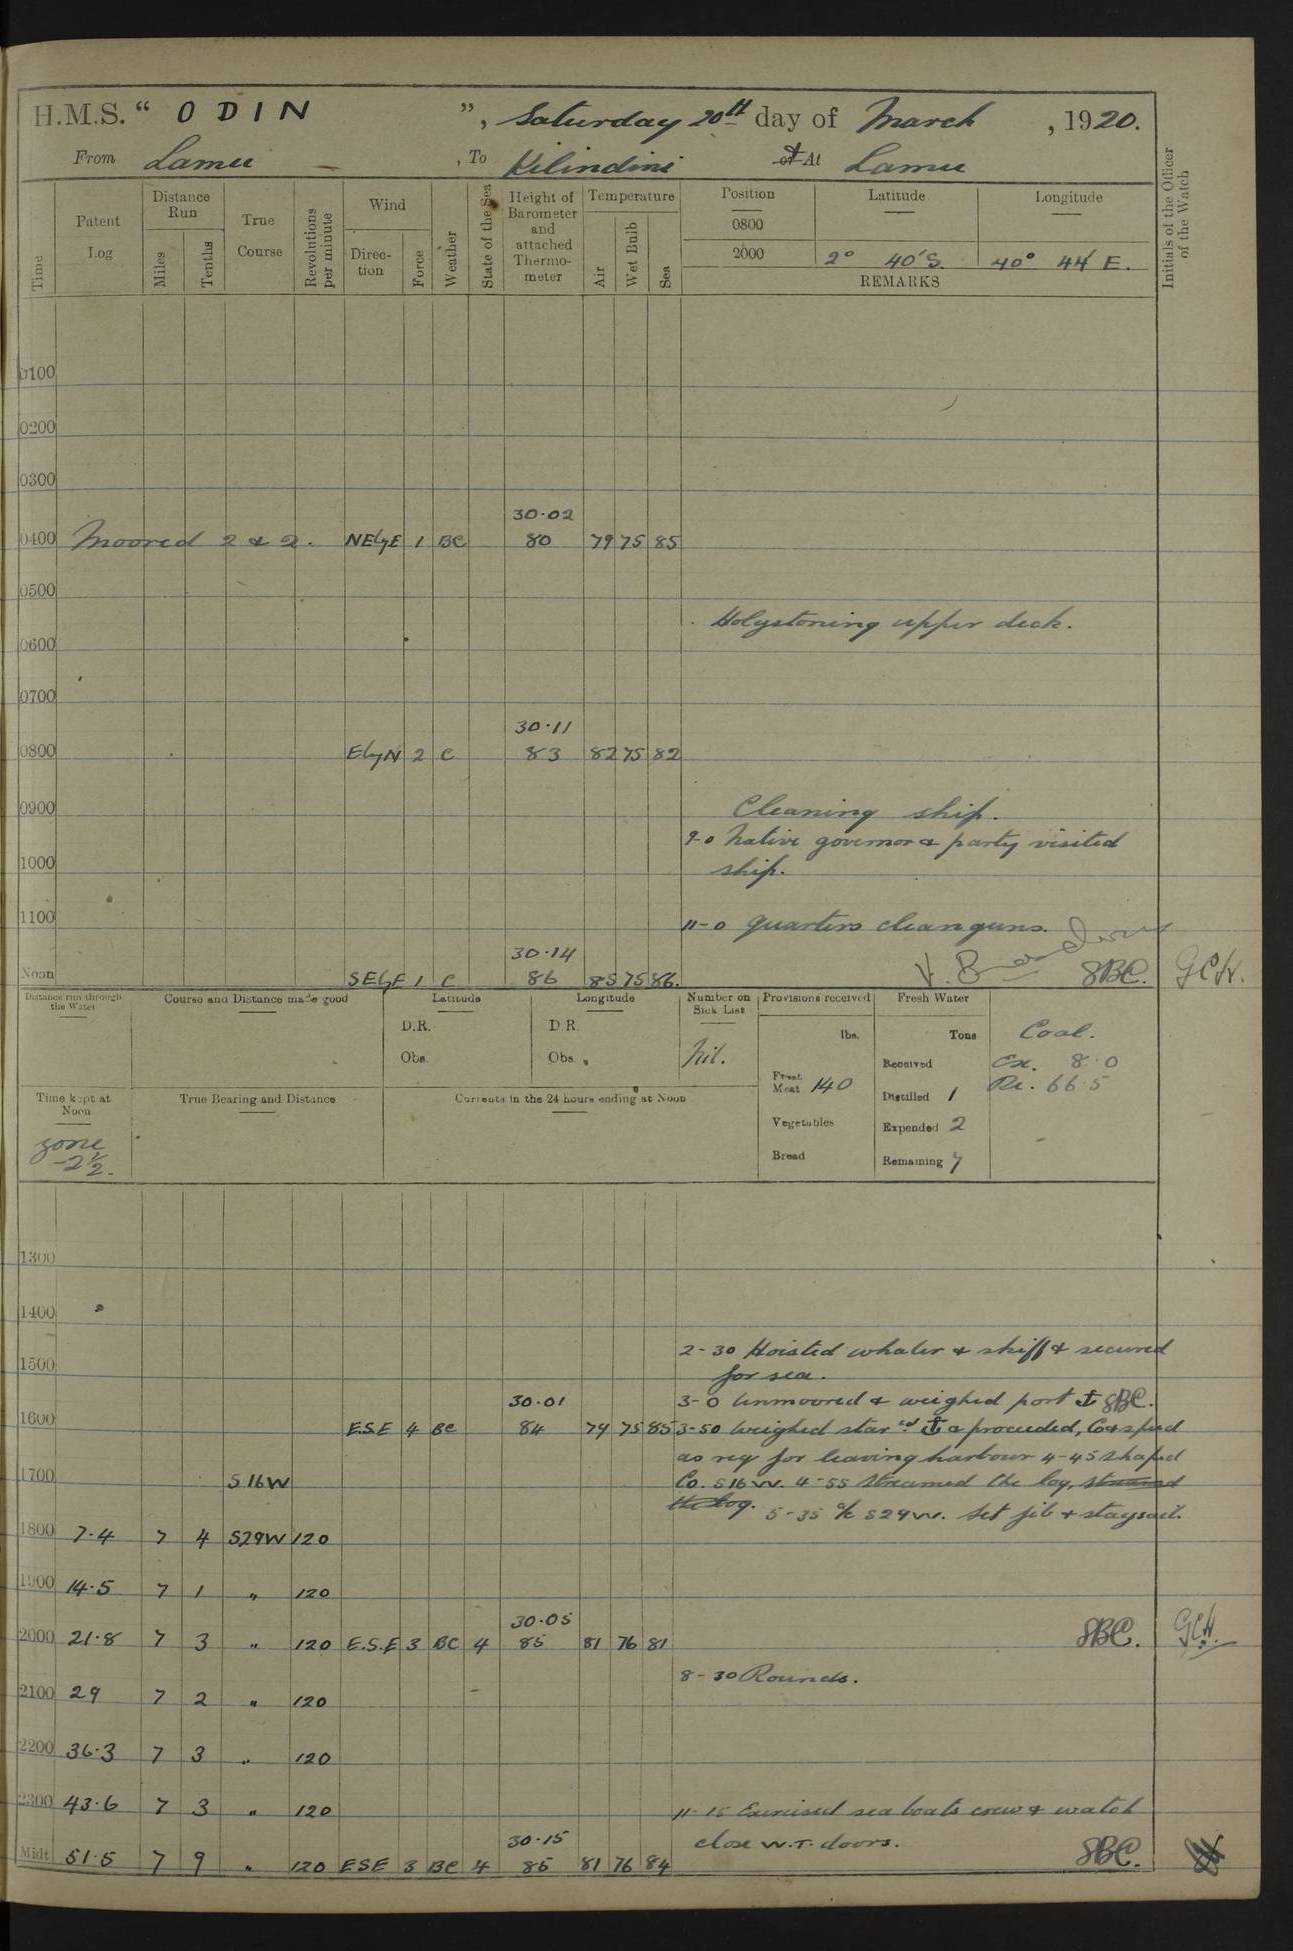 H.M.S. “ ODIN ”, Saturday 20th day of March, 1920.
From Lamu, To Kilindini or At Lamu
Time
Patent Log
Distance Run
Miles
Tenths
True Course
Revolutions per minute
Wind
Direction
Force
Weather
State of the Sea
Height of Barometer and attached Thermometer
Temperature
Air
Wet Bulb
Sea
Position
Latitude
Longitude
0800
2000 2° 40'S. 40° 44' E.
REMARKS
Initials of the Officer of the Watch
0100
0200
0300
30·02
0400 Moored 2 & 2. NEbyE 1 BC 80 79 75 85
0500
Holystoning upper deck.
0600
0700
30·11
0800 EbyN 2 C 83 82 75 82
0900 Cleaning ship.
9-0 Native governor & party visited
1000 ship.
1100 11-0 Quarters clean guns.
30·14
Noon SEbyE 1 C 86 85 75 86. SBC. GCH.
Distance run through the Water
Course and Distance made good
Latitude
D.R.
Obs.
Longitude
D.R.
Obs.
Number on Sick List
Nil.
Provisions received
lbs.
Fresh Meat 140
Vegetables
Bread
Fresh Water
Tons
Received
Distilled 1
Expended 2
Remaining 7
Coal.
Ex. 8·0
Re. 66·5
Time kept at Noon
zone -2½.
True Bearing and Distance
Currents in the 24 hours ending at Noon
1300
1400
2-30 Hoisted whaler & skiff & secured
1500 for sea.
30·01 3-0 Unmoored & weighed port ⚓ SBC.
1600 E.S.E 4 BC 84 79 75 85 3-50 Weighed starbd ⚓ & proceeded, Co & speed
as req for leaving harbour 4-45 shaped
1700 S16W Co. S16W. 4-55 Streamed the log, streamed
the log. 5-35 a/c S29W. Set jib & staysail.
1800 7·4 7 4 S29W 120
1900 14·5 7 1 " 120
30·05
2000 21·8 7 3 " 120 E.S.E 3 BC 4 85 81 76 81 SBC. GCH.
8-30 Rounds.
2100 29 7 2 " 120
2200 36·3 7 3 " 120
2300 43·6 7 3 " 120 11-15 Exercised sea boats crew & watch
30·15 close W.T. doors.
Midt 51·5 7 9 " 120 ESE 3 BC 4 85 81 76 84 SBC.